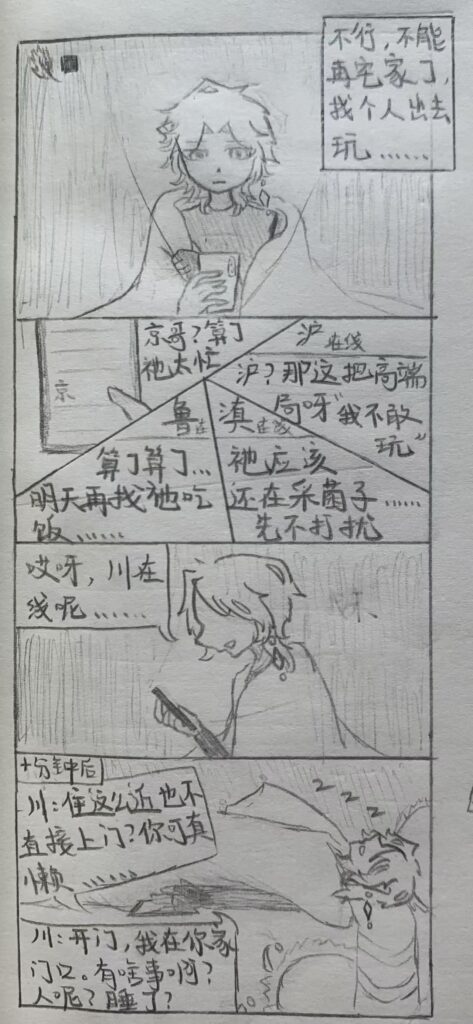 不行,不能
再宅家了,
找个人出去
玩……
京
京哥?算了
祂太忙
沪 在线
沪?那这把高端
局呀“我不敢
玩”
鲁
算了算了…
明天再找祂吃
饭……
滇
祂应该
还在采菌子……
先不打扰
哎呀,川在
线呢……
十分钟后
川:住这么近也不
直接上门?你可真
懒……
z z z z
川:开门,我在你家
门口。有啥事啊?
人呢?睡了?